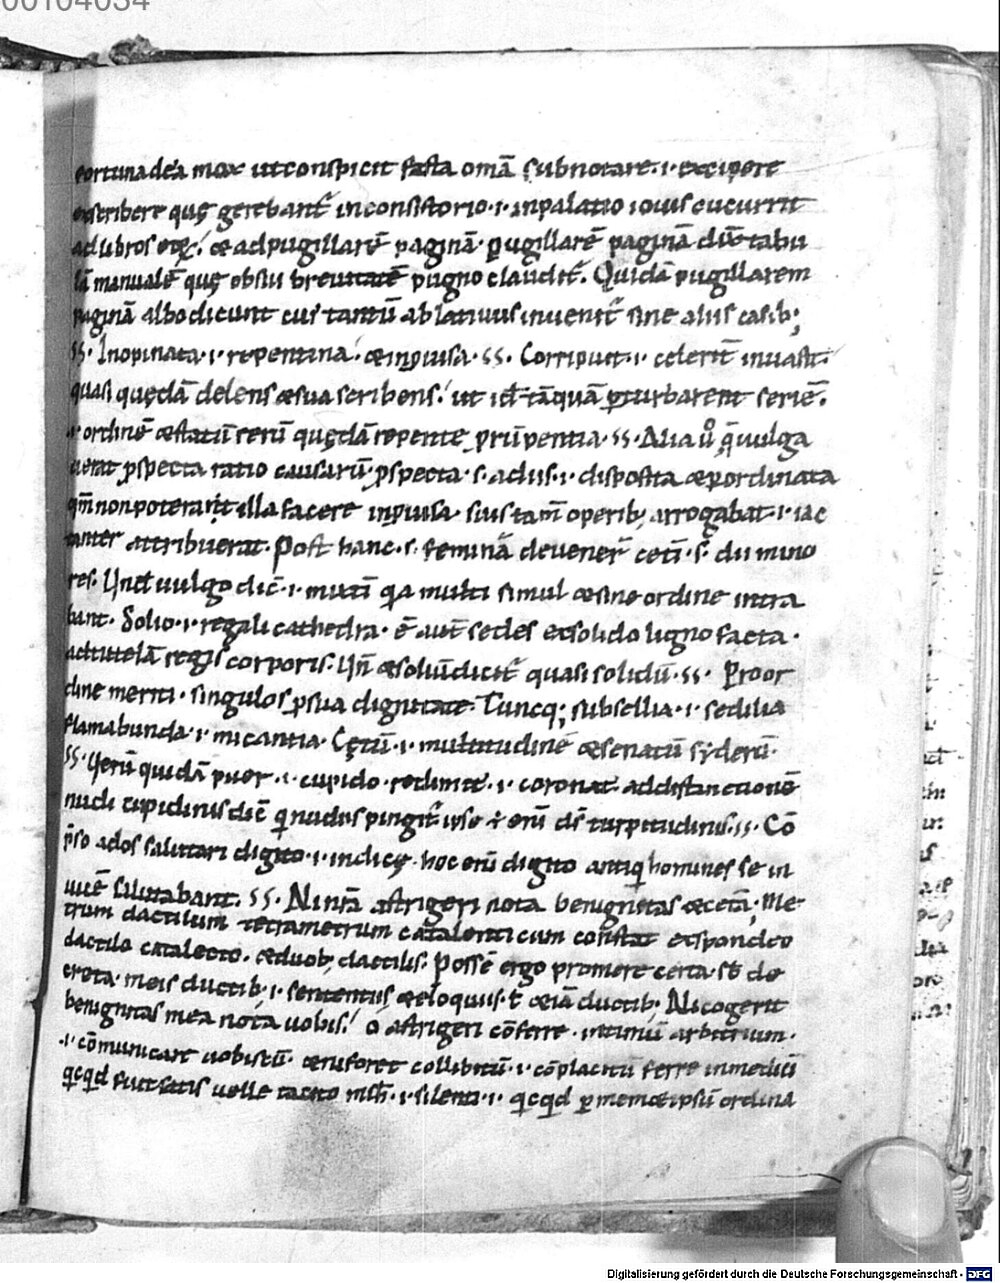 00104034
fortuna deā mox ut conspicit facta omā subnotare .i. excipere
describere quę gerebant̄ in consistorio .i. in palatio iouis cucurrit
ad libros & ad pugillarē paginā. pugillarē paginā dic̄ tabu
lā manualē quę ob sui breuitatē pugno claudit̄. Quidā pugillarem
paginā albo dicunt cuiꝰ tantū ablatiuus inuenit̄ sine aliis casib;
ss. Inopinata .i. repentina. & inꝓuisa. ss. Corripuit .i. celerit̄ inuasit.
quasi quędā delens & sua scribens. ut id tāquā ꝑturbarent seriē.
.i. ordinē & statū rerū quędā repente ꝓrūpentia. ss. Alia ū q̄ uulga
uerat ꝓspecta ratio causarū. ꝓspecta .s. a diis .i. disposita & ꝑordinata
qm̄ non poterant illa facere inꝓuisa. suis tam̄ operib; arrogabat .i. iac
tanter attribuerat. Post hanc .s. feminā deuener̄ ceti .s. dii mino
res. Vnde uulgo dic̄ .i. muti q̇a multi simul & sine ordine intra
bant. Solio .i. regali cathedra. ē aut̄ sedes ex solido ligno facta.
ad tutelā regis corporis. Vn̄ & soliū dicit̄ quasi solidū. ss. Pro or
dine meriti. singulos ꝓ sua dignitate. Tuncq; subsellia .i. sedilia
flamabunda .i. micantia. Cętū .i. multitudinē & senatū syderū.
ss. Verū quidā puer .i. cupido. redimit .i. coronat. ad distinctionē
nudi cupidinis dic̄ q̇ nudus pingit̄ ipse ÷ enī ds̄ turpitudinis. ss. Cō
p̄so ad os salutari digito .i. indice. hoc enī digito antiq̇ homines se in
uicē salutabant. ss. Ni nr̄ā astrigeri nota benignitas & cet̄a. Me
trum dactilicum tetrametrum catalecticum constat ex spondeo
dactilo catalecto. & duob; dactilis. Possē ergo promere certa. st̄ de
creta. meis ductib; .i. sententiis & eloquiis. ł & iā ductib; Ni cogerit
benignitas mea nota uobis. o astrigeri cōferre. intimū arbitrium.
.i. cōmunicare uobiscū. & ni foret collibitū .i. cōplacitū ferre in mediū
q̇cq̇d fuit satis uelle tacito mih̄ .i. silenti .i. q̇cq̇d ꝑ memet ipsū ordina
Digitalisierung gefördert durch die Deutsche Forschungsgemeinschaft - DFG